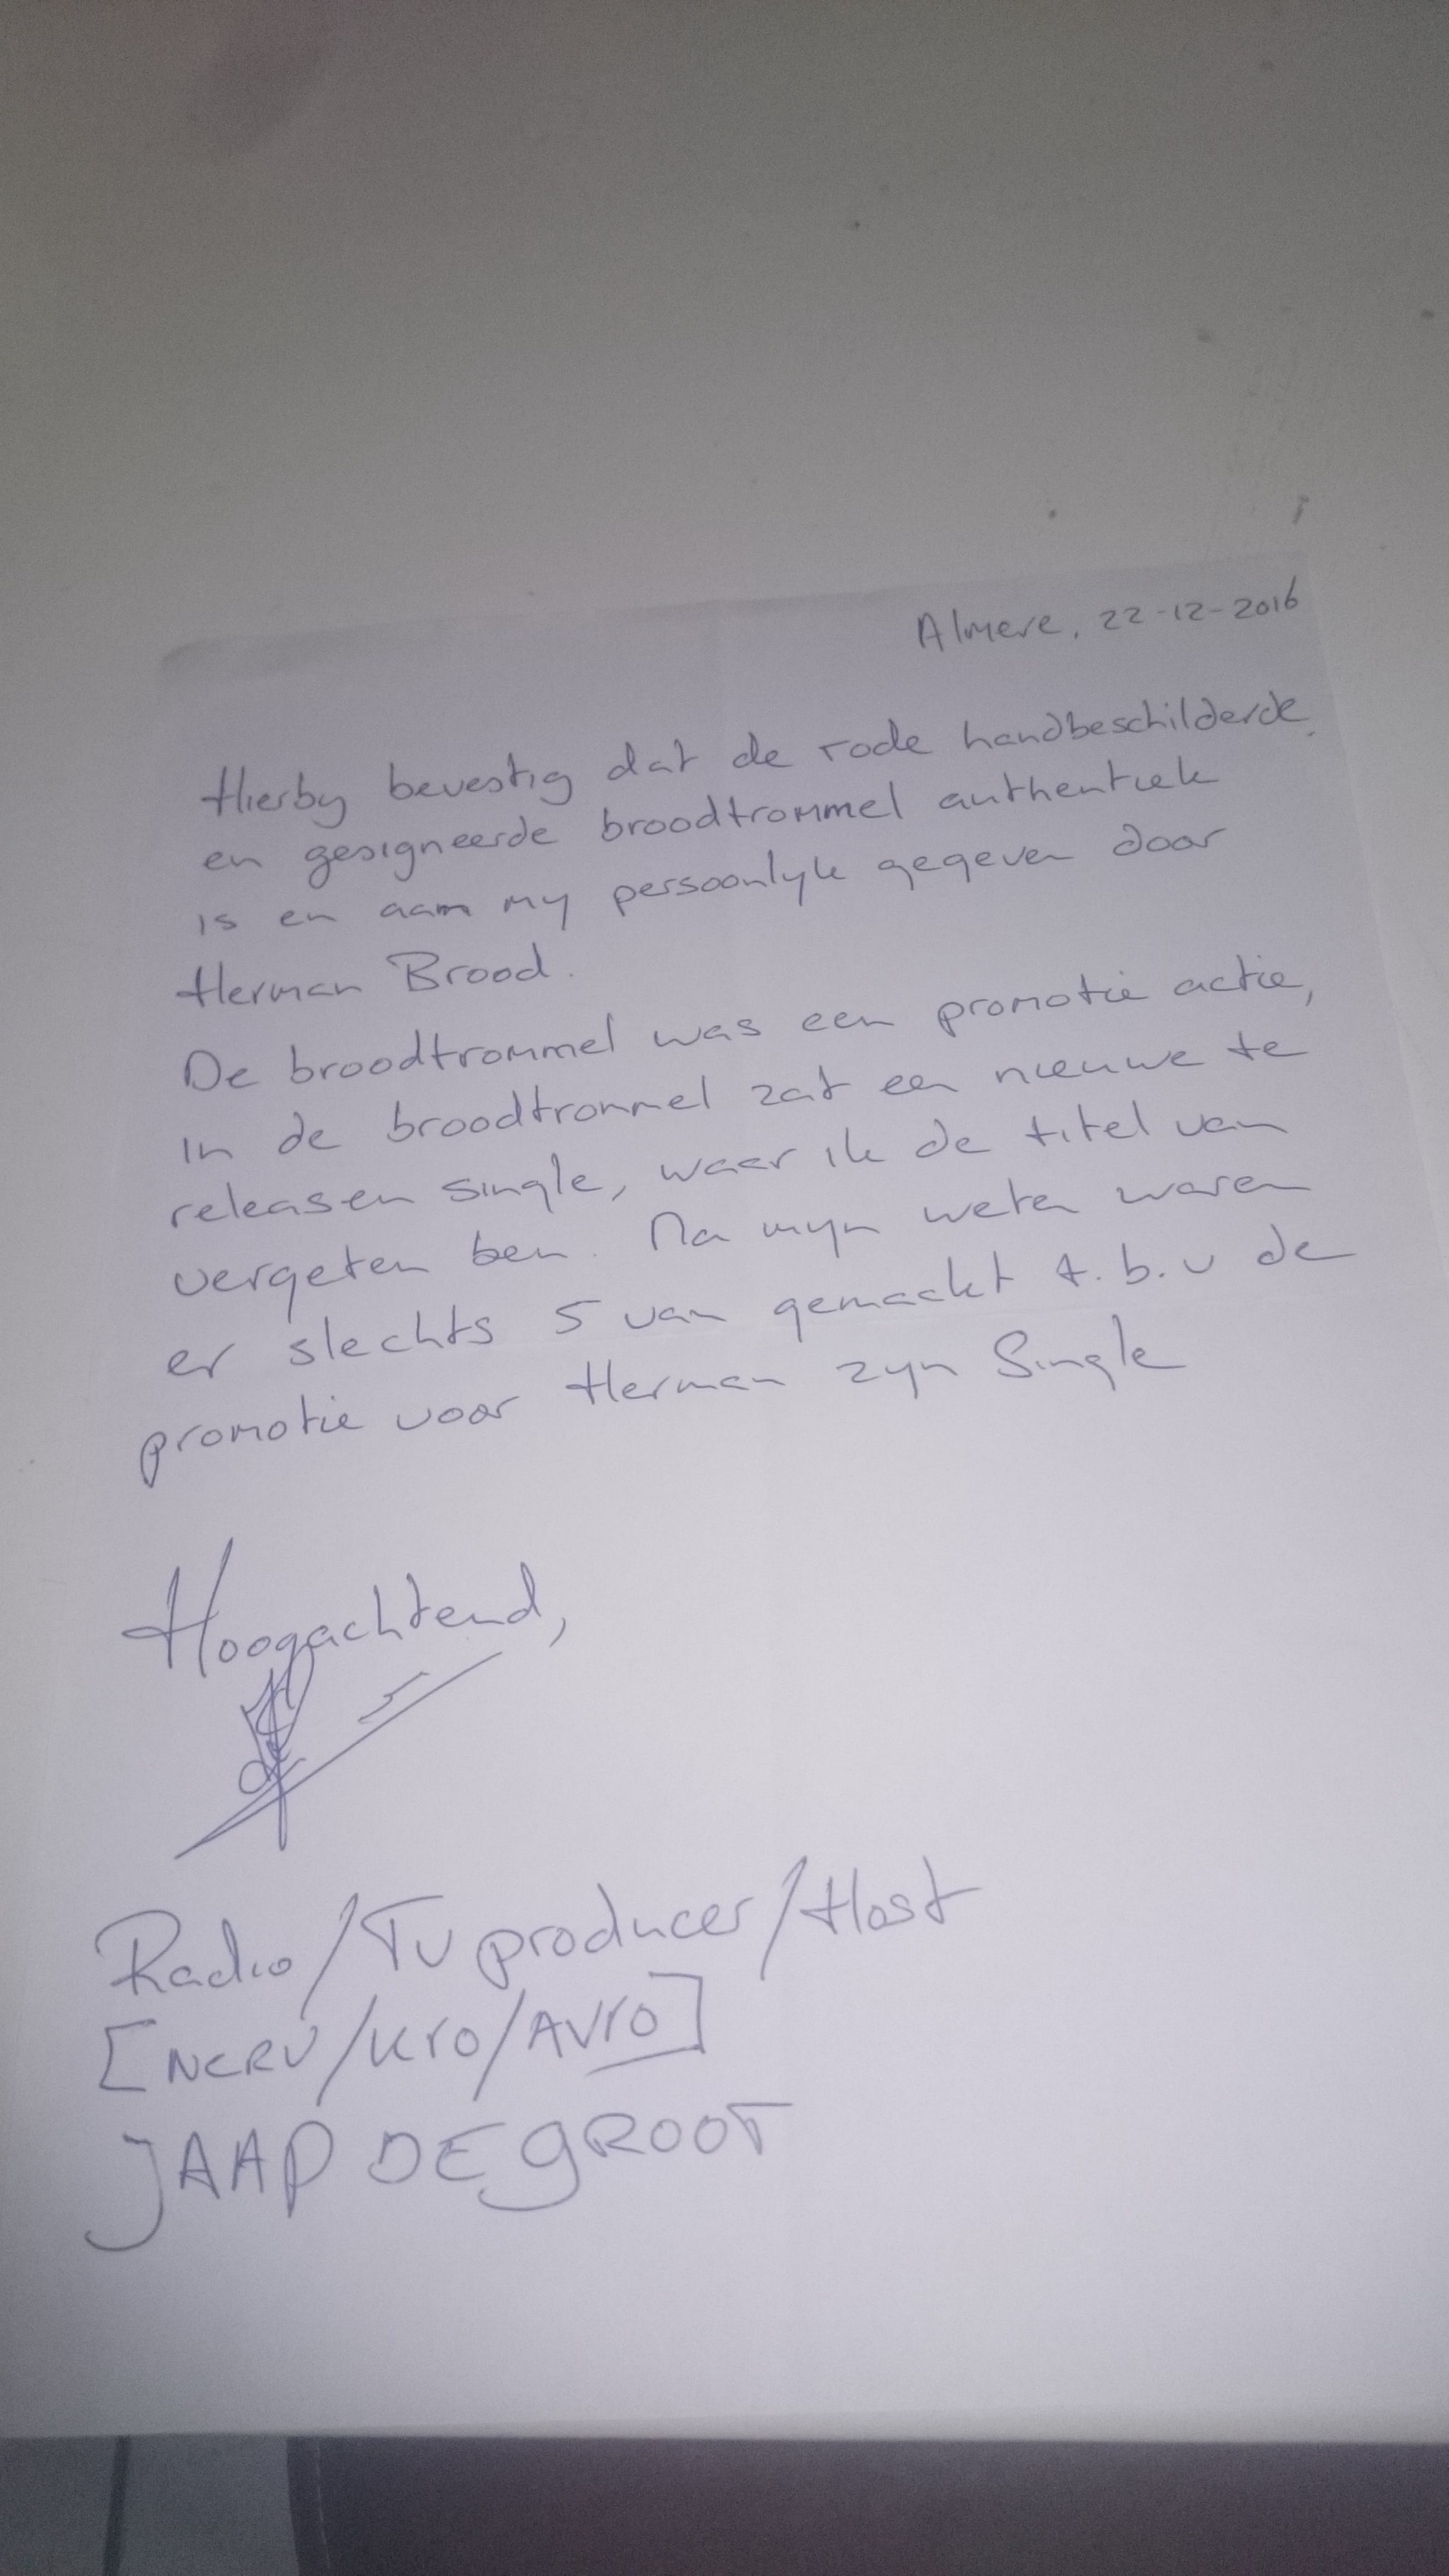 Almere, 22-12-2016
Hierby bevestig dat de rode handbeschilderde
en gesigneerde broodtrommel authentiek
is en aan my persoonlyk gegeven door
Herman Brood.
De broodtrommel was een promotie actie,
in de broodtrommel zat een nieuwe te
releasen single, waar ik de titel van
vergeten ben. Na myn weten waren
er slechts 5 van gemaakt t.b.v de
promotie voor Herman zyn Single
Hoogachtend,
Radio/TV producer/Host
[NCRV/KRO/AVRO]
JAAP DE GROOT